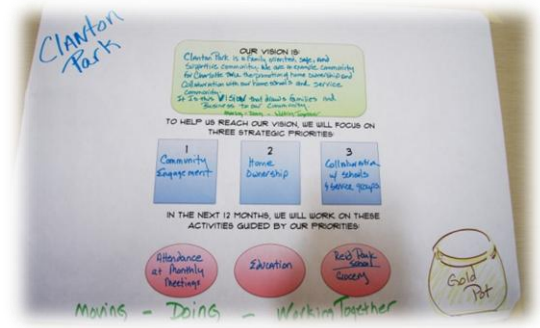 CLANTON
PARK
OUR VISION IS:
Clanton Park is a family oriented, safe, and
supportive community. We are an example community
for Charlotte promoting home ownership and
collaboration with our home schools and service
community.
It is this VISION that draws families and
Business to our Community.
Moving - Doing - Working Together
TO HELP US REACH OUR VISION, WE WILL FOCUS ON
THREE STRATEGIC PRIORITIES:
1
Community
Engagement
2
Home
Ownership
3
Collaboration
w/ schools
& service groups
IN THE NEXT 12 MONTHS, WE WILL WORK ON THESE
ACTIVITIES GUIDED BY OUR PRIORITIES:
Attendance
at Monthly
Meetings
Education
Reid Park
School
Grocery
Gold
Pot
Moving - Doing - Working Together